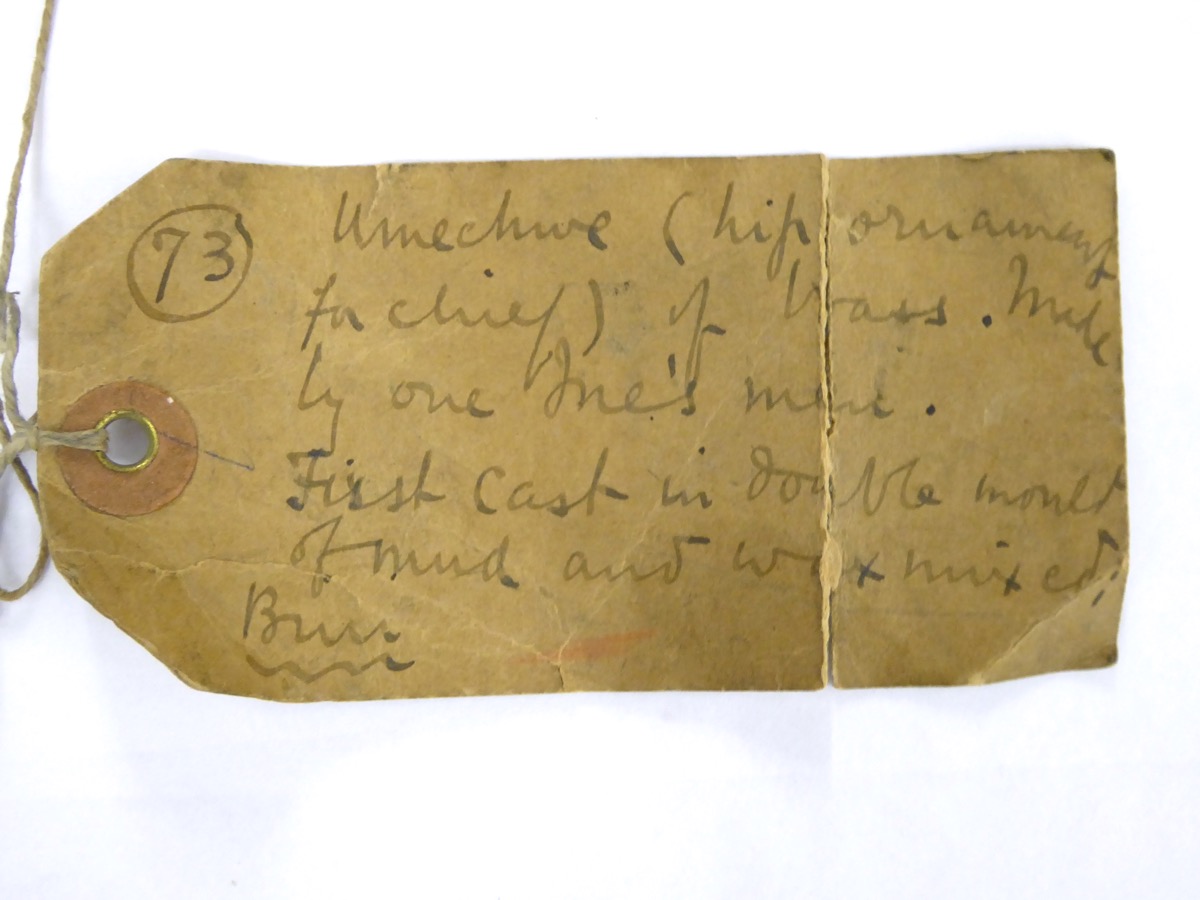 73 Umechwe (hip ornament
for chief) of brass. Made
by one Ine's men.
First cast in double mould
of mud and wax mixed;
Bini